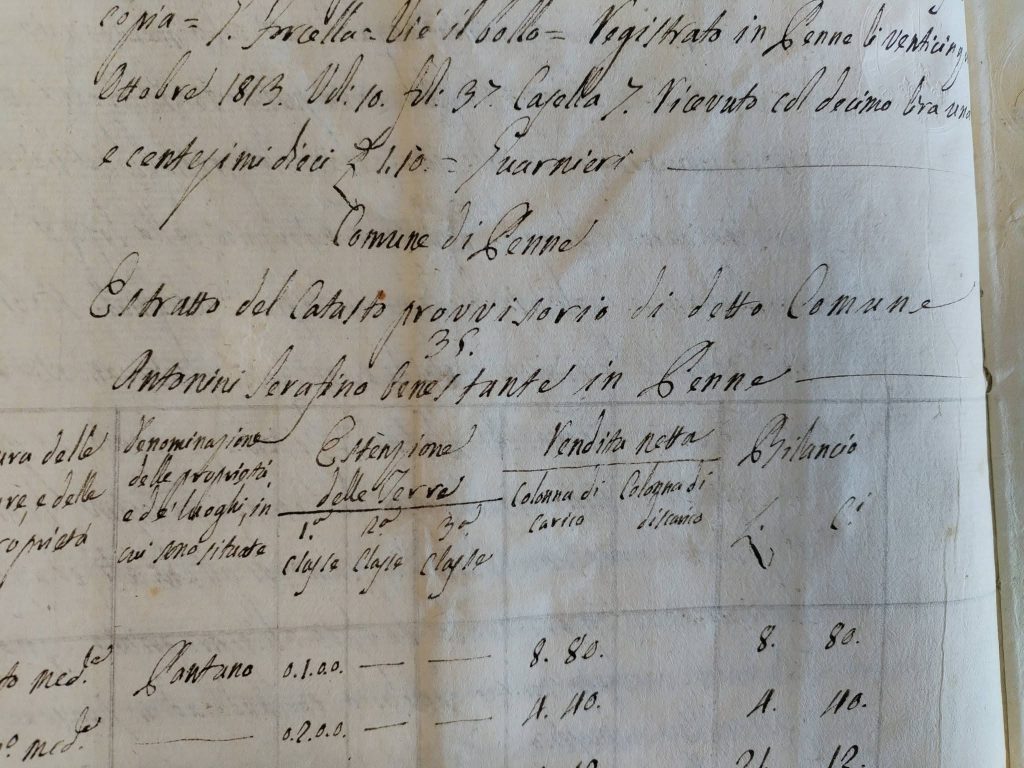 copia = J. Forcella = Vi è il bollo = Registrato in Penne li venticinq
Ottobre 1813. Vol: 10. fol: 37. Casella 7. Ricevuto col decimo lira una
e centesimi dieci £ 1.10. = Guarnieri
Comune di Penne
Estratto del Catasto provvisorio di detto Comune
35.
Antonini Serafino benestante in Penne
ura delle
Denominazione
Estenzione
Rendita netta
Bilancio
re, e delle
delle proprietà,
delle Terre
Colonna di
Colonna di
roprietà
e de' luoghi, in
1.a
2.a
3.a
carico
discarico
L.
C.i
cui sono situate
Classe
Classe
Classe
to med.e
Pantano
0.1.0.0.
8. 80.
8. 80.
o med.e
0.2.0.0.
4. 40.
4. 40.
12.